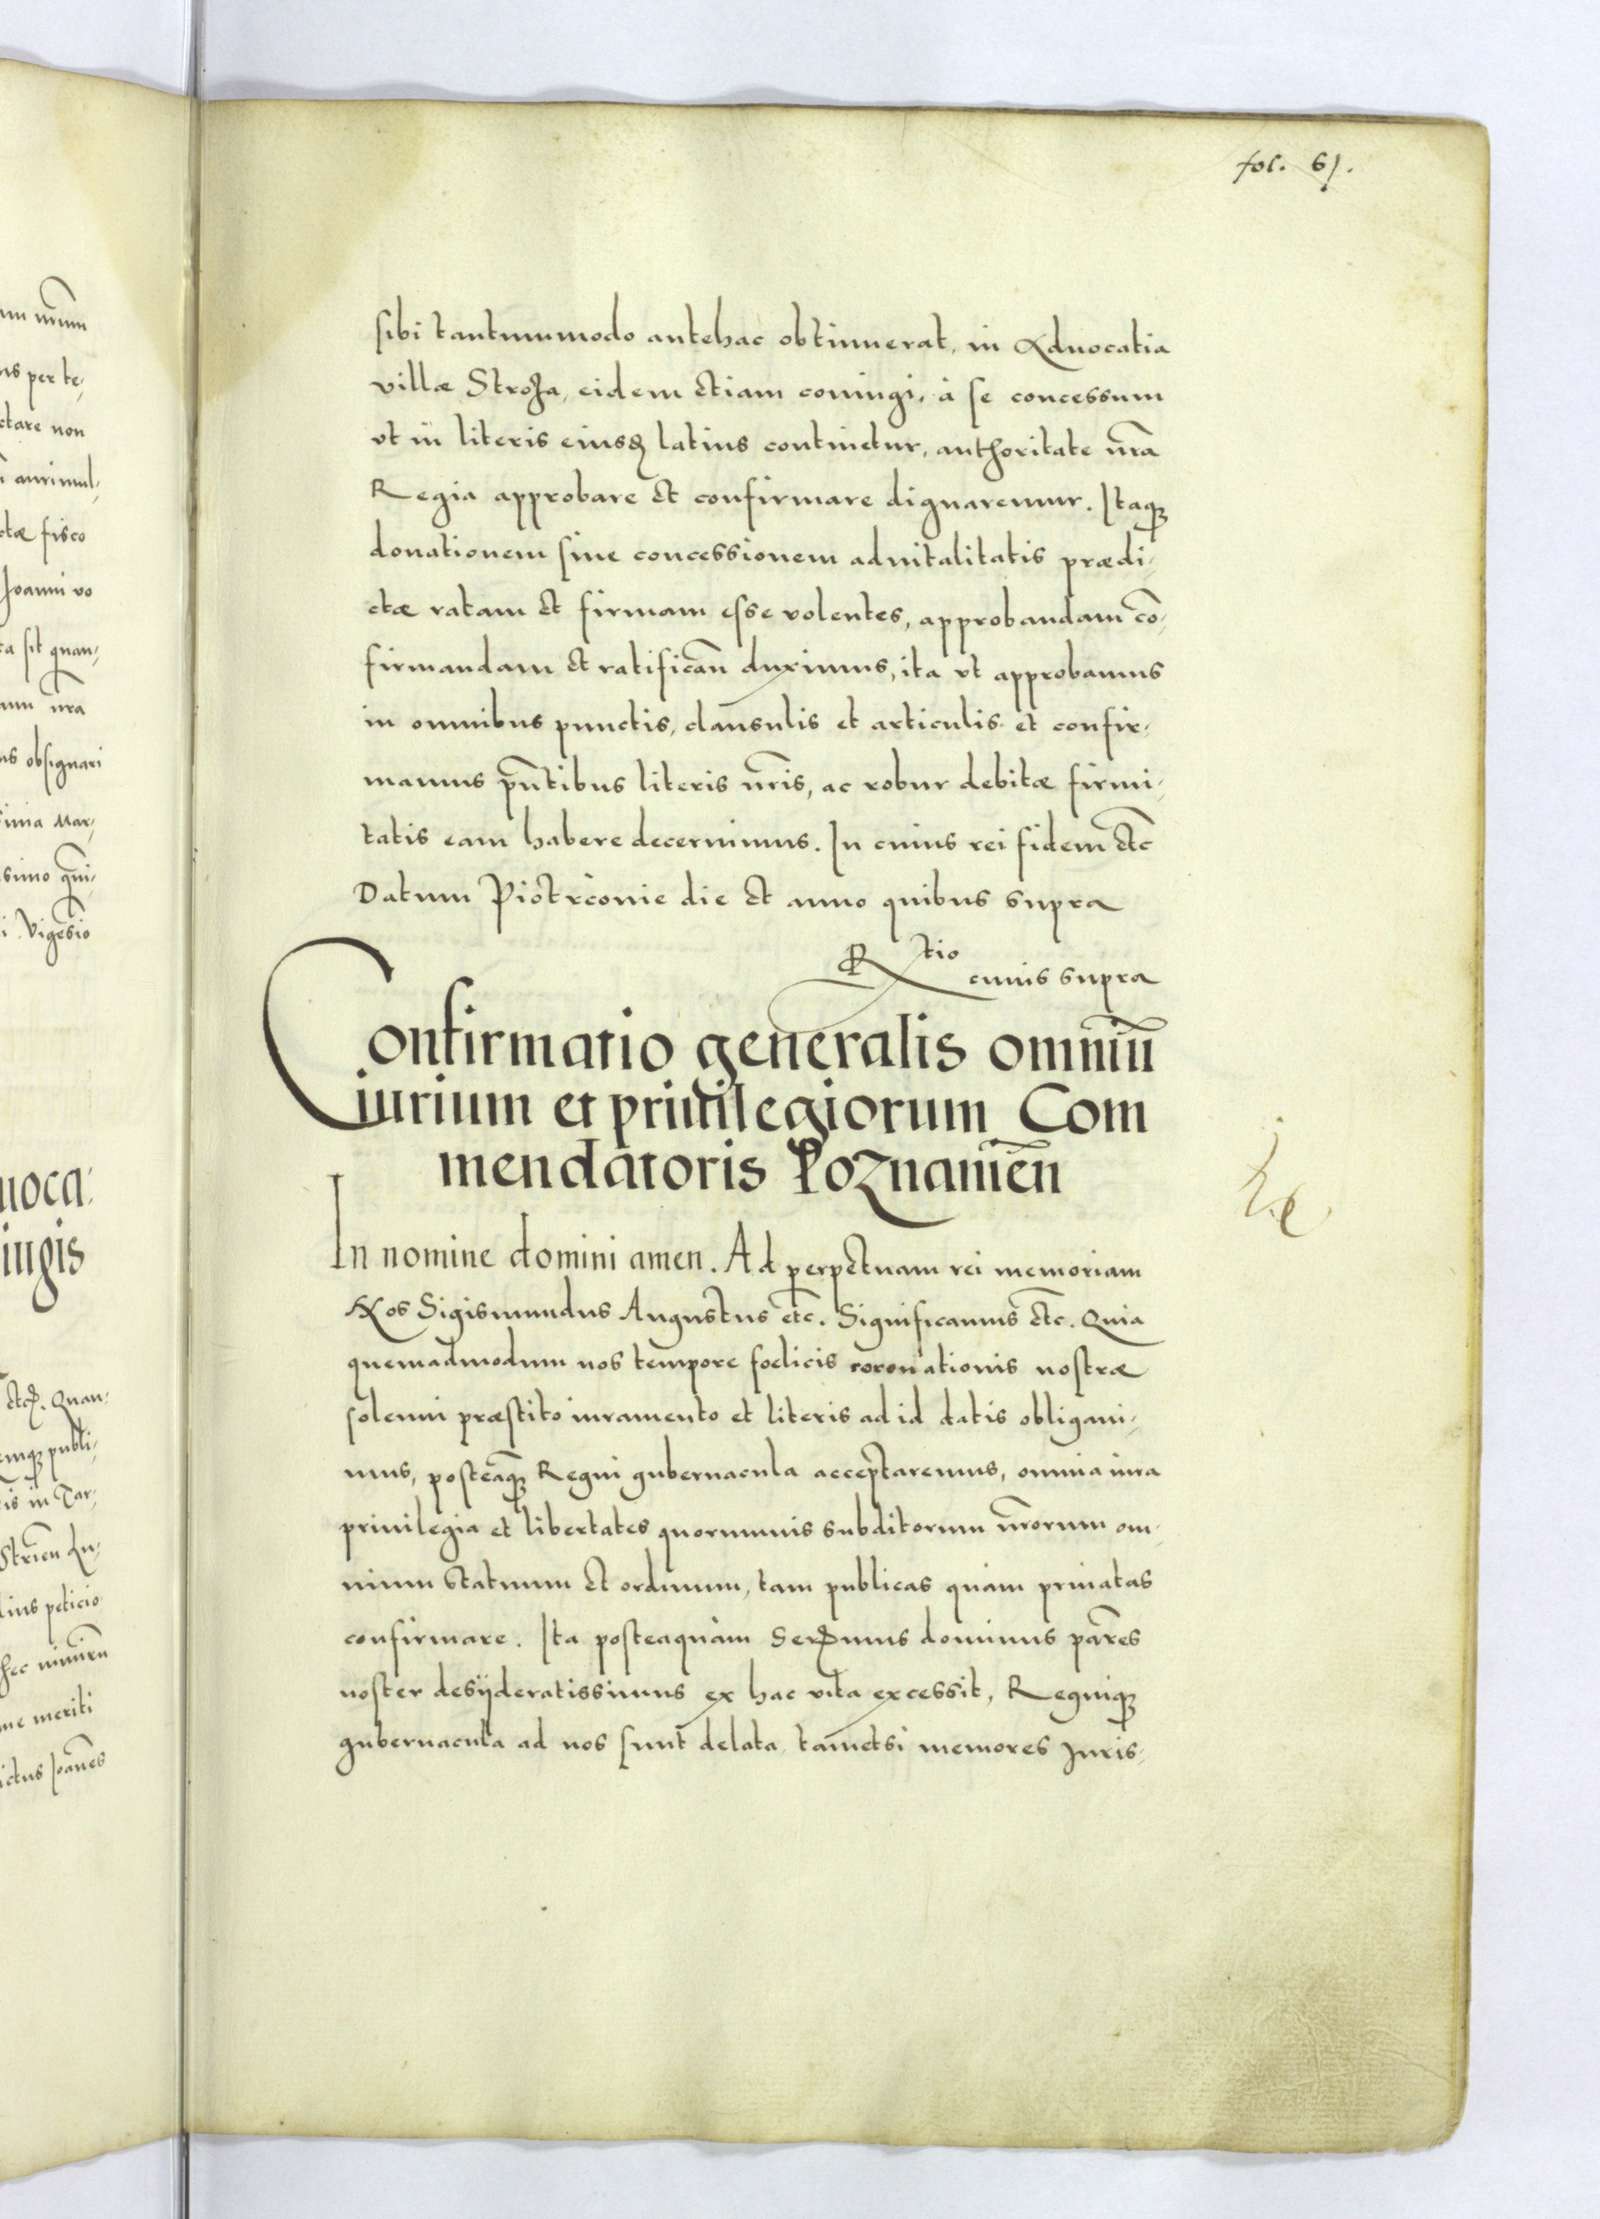 fol. 61.
sibi tantummodo antehac obtinuerat, in Aduocatia
villæ Stroza, eidem etiam coniugi, à se concessum
vt in literis eiusdem latius continetur, authoritate nr̃a
Regia approbare et confirmare dignaremur. Itaq3
donationem siue concessionem aduitalitatis prædi-
ctæ ratam et firmam esse volentes, approbandam cõ-
firmandam et ratificañ duximus, ita vt approbamus
in omnibus punctis, clausulis et articulis et confir-
mamus pñtibus literis nr̃is, ac robur debitæ firmi-
tatis eam habere decernimus. In cuius rei fidem etc̃
Datum Piotrconie die et anno quibus supra
Rtio
cuius supra
Confirmatio generalis omniũ
iurium et priuilegiorum Com
mendatoris Poznanieñ
In nomine domini amen. Ad perpetuam rei memoriam
Nos Sigismundus Augustus etc̃. Significamus etc̃. Quia
quemadmodum nos tempore foelicis coronationis nostræ
solenni præstito iuramento et literis ad id datis obligaui-
mus, posteaq̃3 Regni gubernacula acceptaremus, omnia iura
priuilegia et libertates quorumuis subditorum nr̃orum om-
nium statuum et ordinum, tam publicas quàm priuatas
confirmare. Ita posteaquàm Ser̃mus dominus par̃es
noster desyderatissimus ex hac vita excessit, Regniq3
gubernacula ad nos sunt delata tametsi memores Juris-
um nr̃um
us per te-
ctare non
aurimul-
ctæ fisco
Joanni vo
ta sit quan-
um nr̃a
us obsignari
sima Mar-
simo qũi-
i. Vigesĩo
uoca-
iugis
Quan-
emq3 publi-
is in Tar-
Strieñ Lu-
lius peticio
hec nimiru
me meriti
ictus Joañes